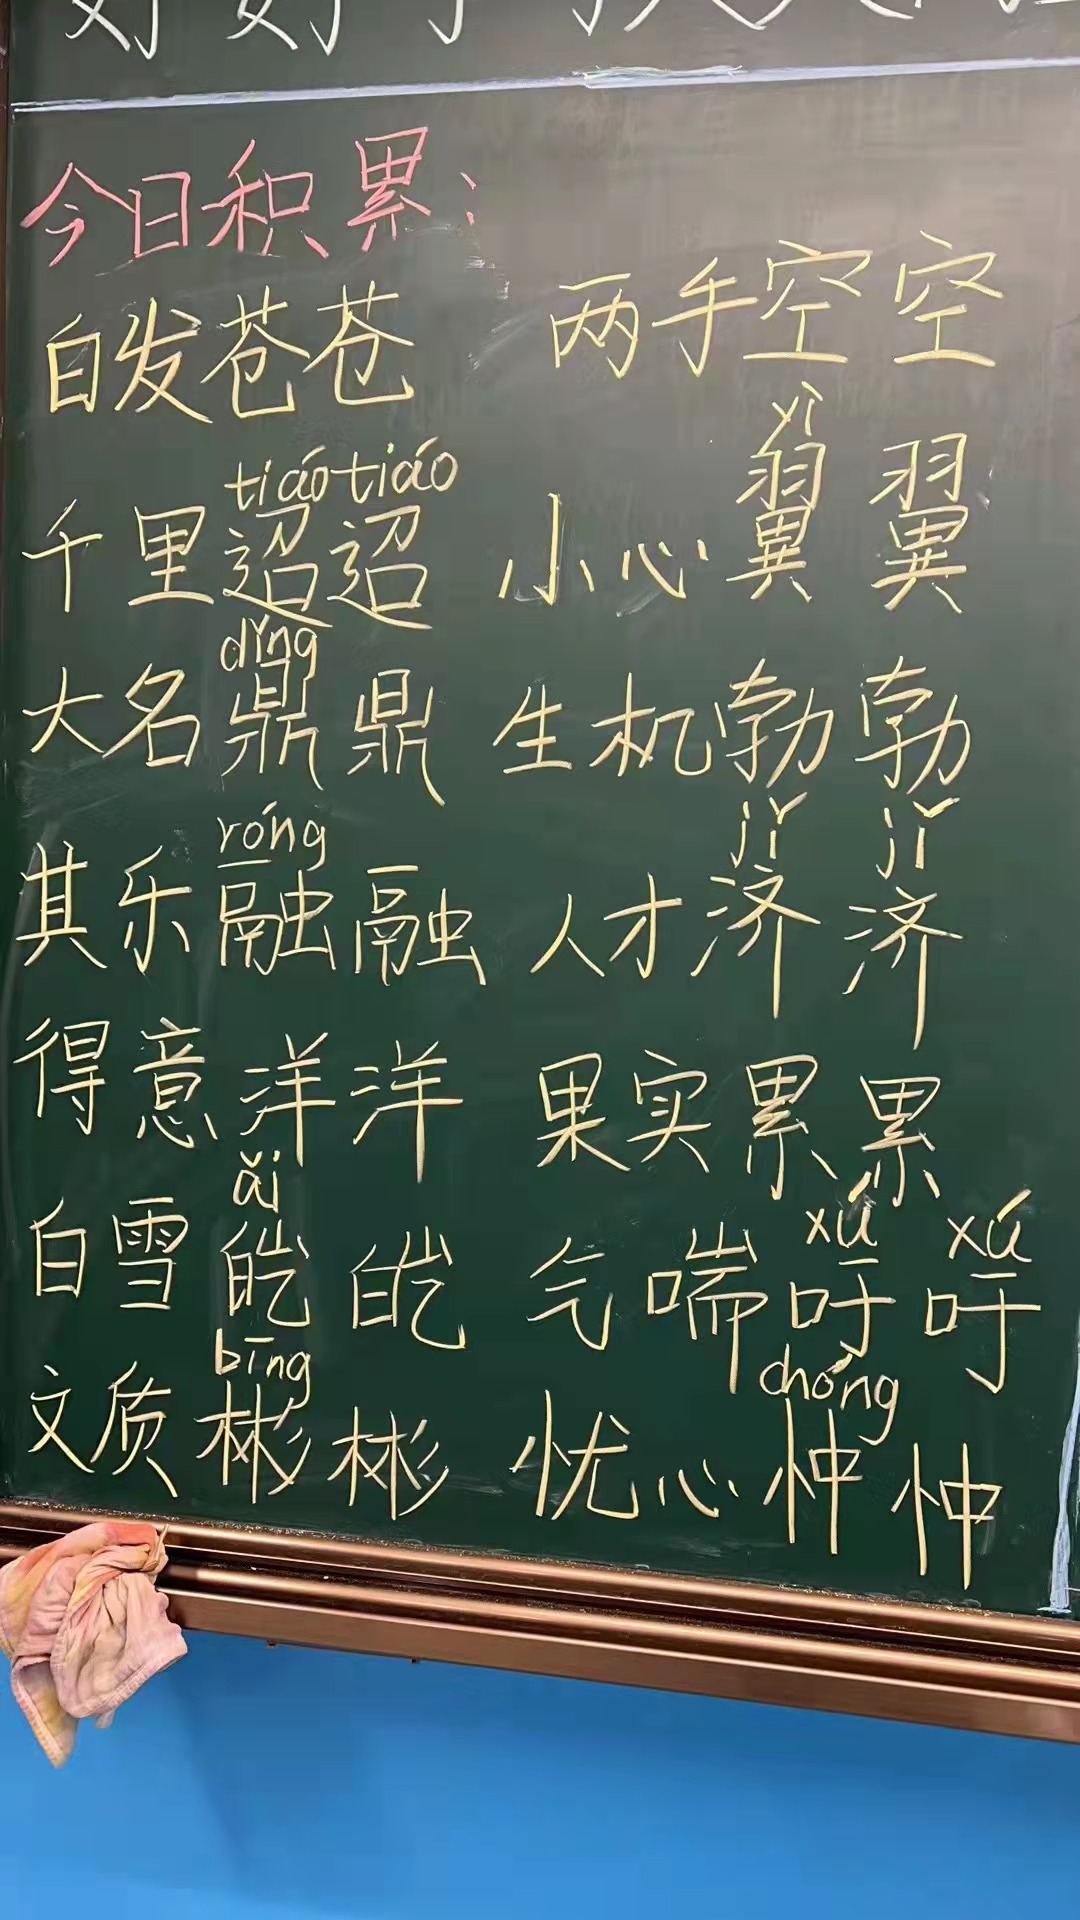 今日积累：
白发苍苍 两手空空
tiáo tiáo yì
千里迢迢 小心翼翼
dǐng
大名鼎鼎 生机勃勃
róng jǐ jǐ
其乐融融 人才济济
得意洋洋 果实累累
ǎi xú xú
白雪皑皑 气喘吁吁
bīng chóng
文质彬彬 忧心忡忡